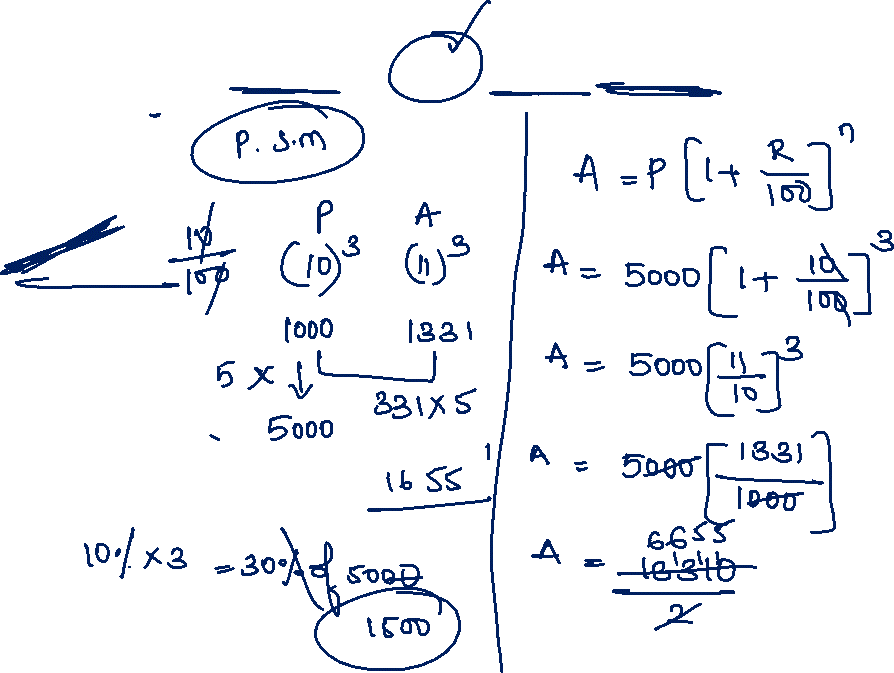 P. S.M
P A
10/100 (10)^3 (11)^3
1000 1331
5 × ↓
5000 331×5
1655
10% ×3 = 30% of 5000
1500
A = P [1+ R/100]^n
A = 5000 [1+ 10/100]^3
A = 5000 [11/10]^3
A = 5000 [1331/1000]
6655
A = 13310/2